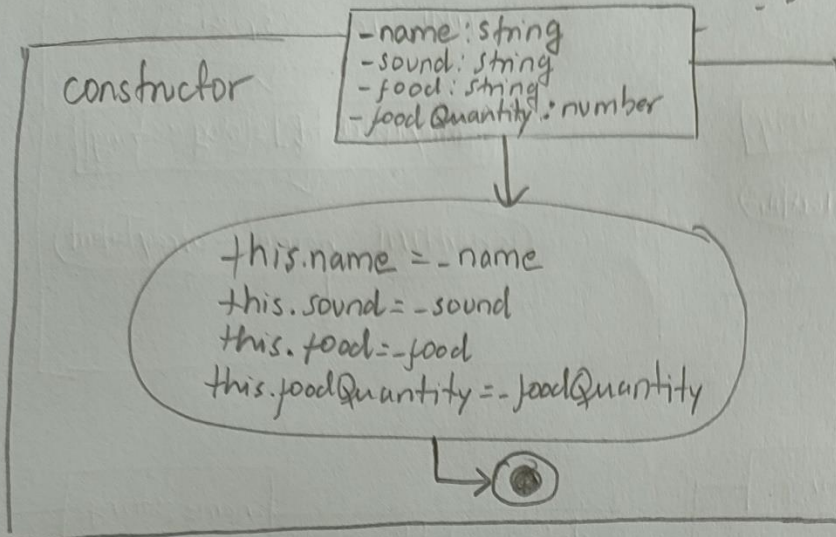 constructor
_name: string
_sound: string
_food: string
_foodQuantity: number
this.name = _name
this.sound = _sound
this.food = _food
this.foodQuantity = _foodQuantity